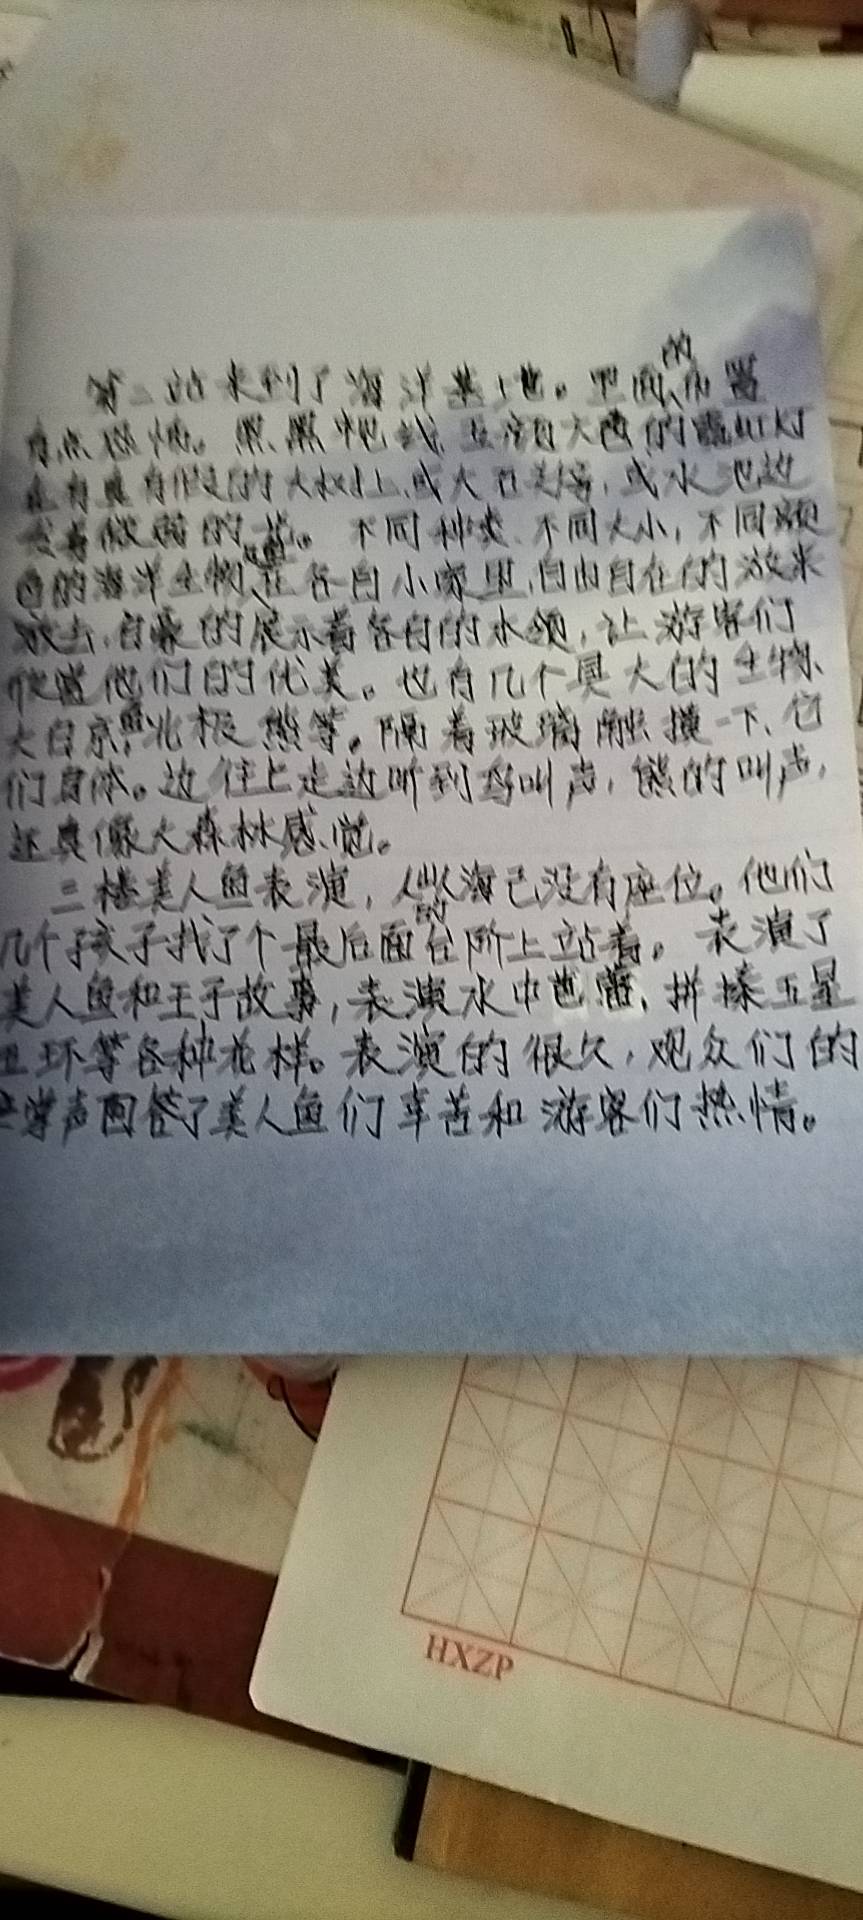 第二站来到了海洋基地。里面的布置
有点恐怖。黑黑 五颜六色的霓虹灯
在有真有假的大树上,或大石头旁,或水池边
发着微弱的光。不同种类、不同大小,不同颜
色的海洋生物在各自小家里,自由自在的游来
游去,自豪的展示着各自的本领,让游客们
他们的优美。也有几个具大的生物、
大白京鱼,北极熊等。隔着玻璃触摸一下、它
们身体。边往上走边听到鸟叫声,熊的叫声,
还真像大森林感觉。
三楼美人鱼表演,人山人海已没有座位。他们
几个孩子找了个最后面的台阶上站着。表演了
美人鱼和王子故事,表演水中芭蕾、拼揍五星
五环等各种花样。表演的很久,观众们的
掌声回答了美人鱼们辛苦和游客们热情。
HXZP